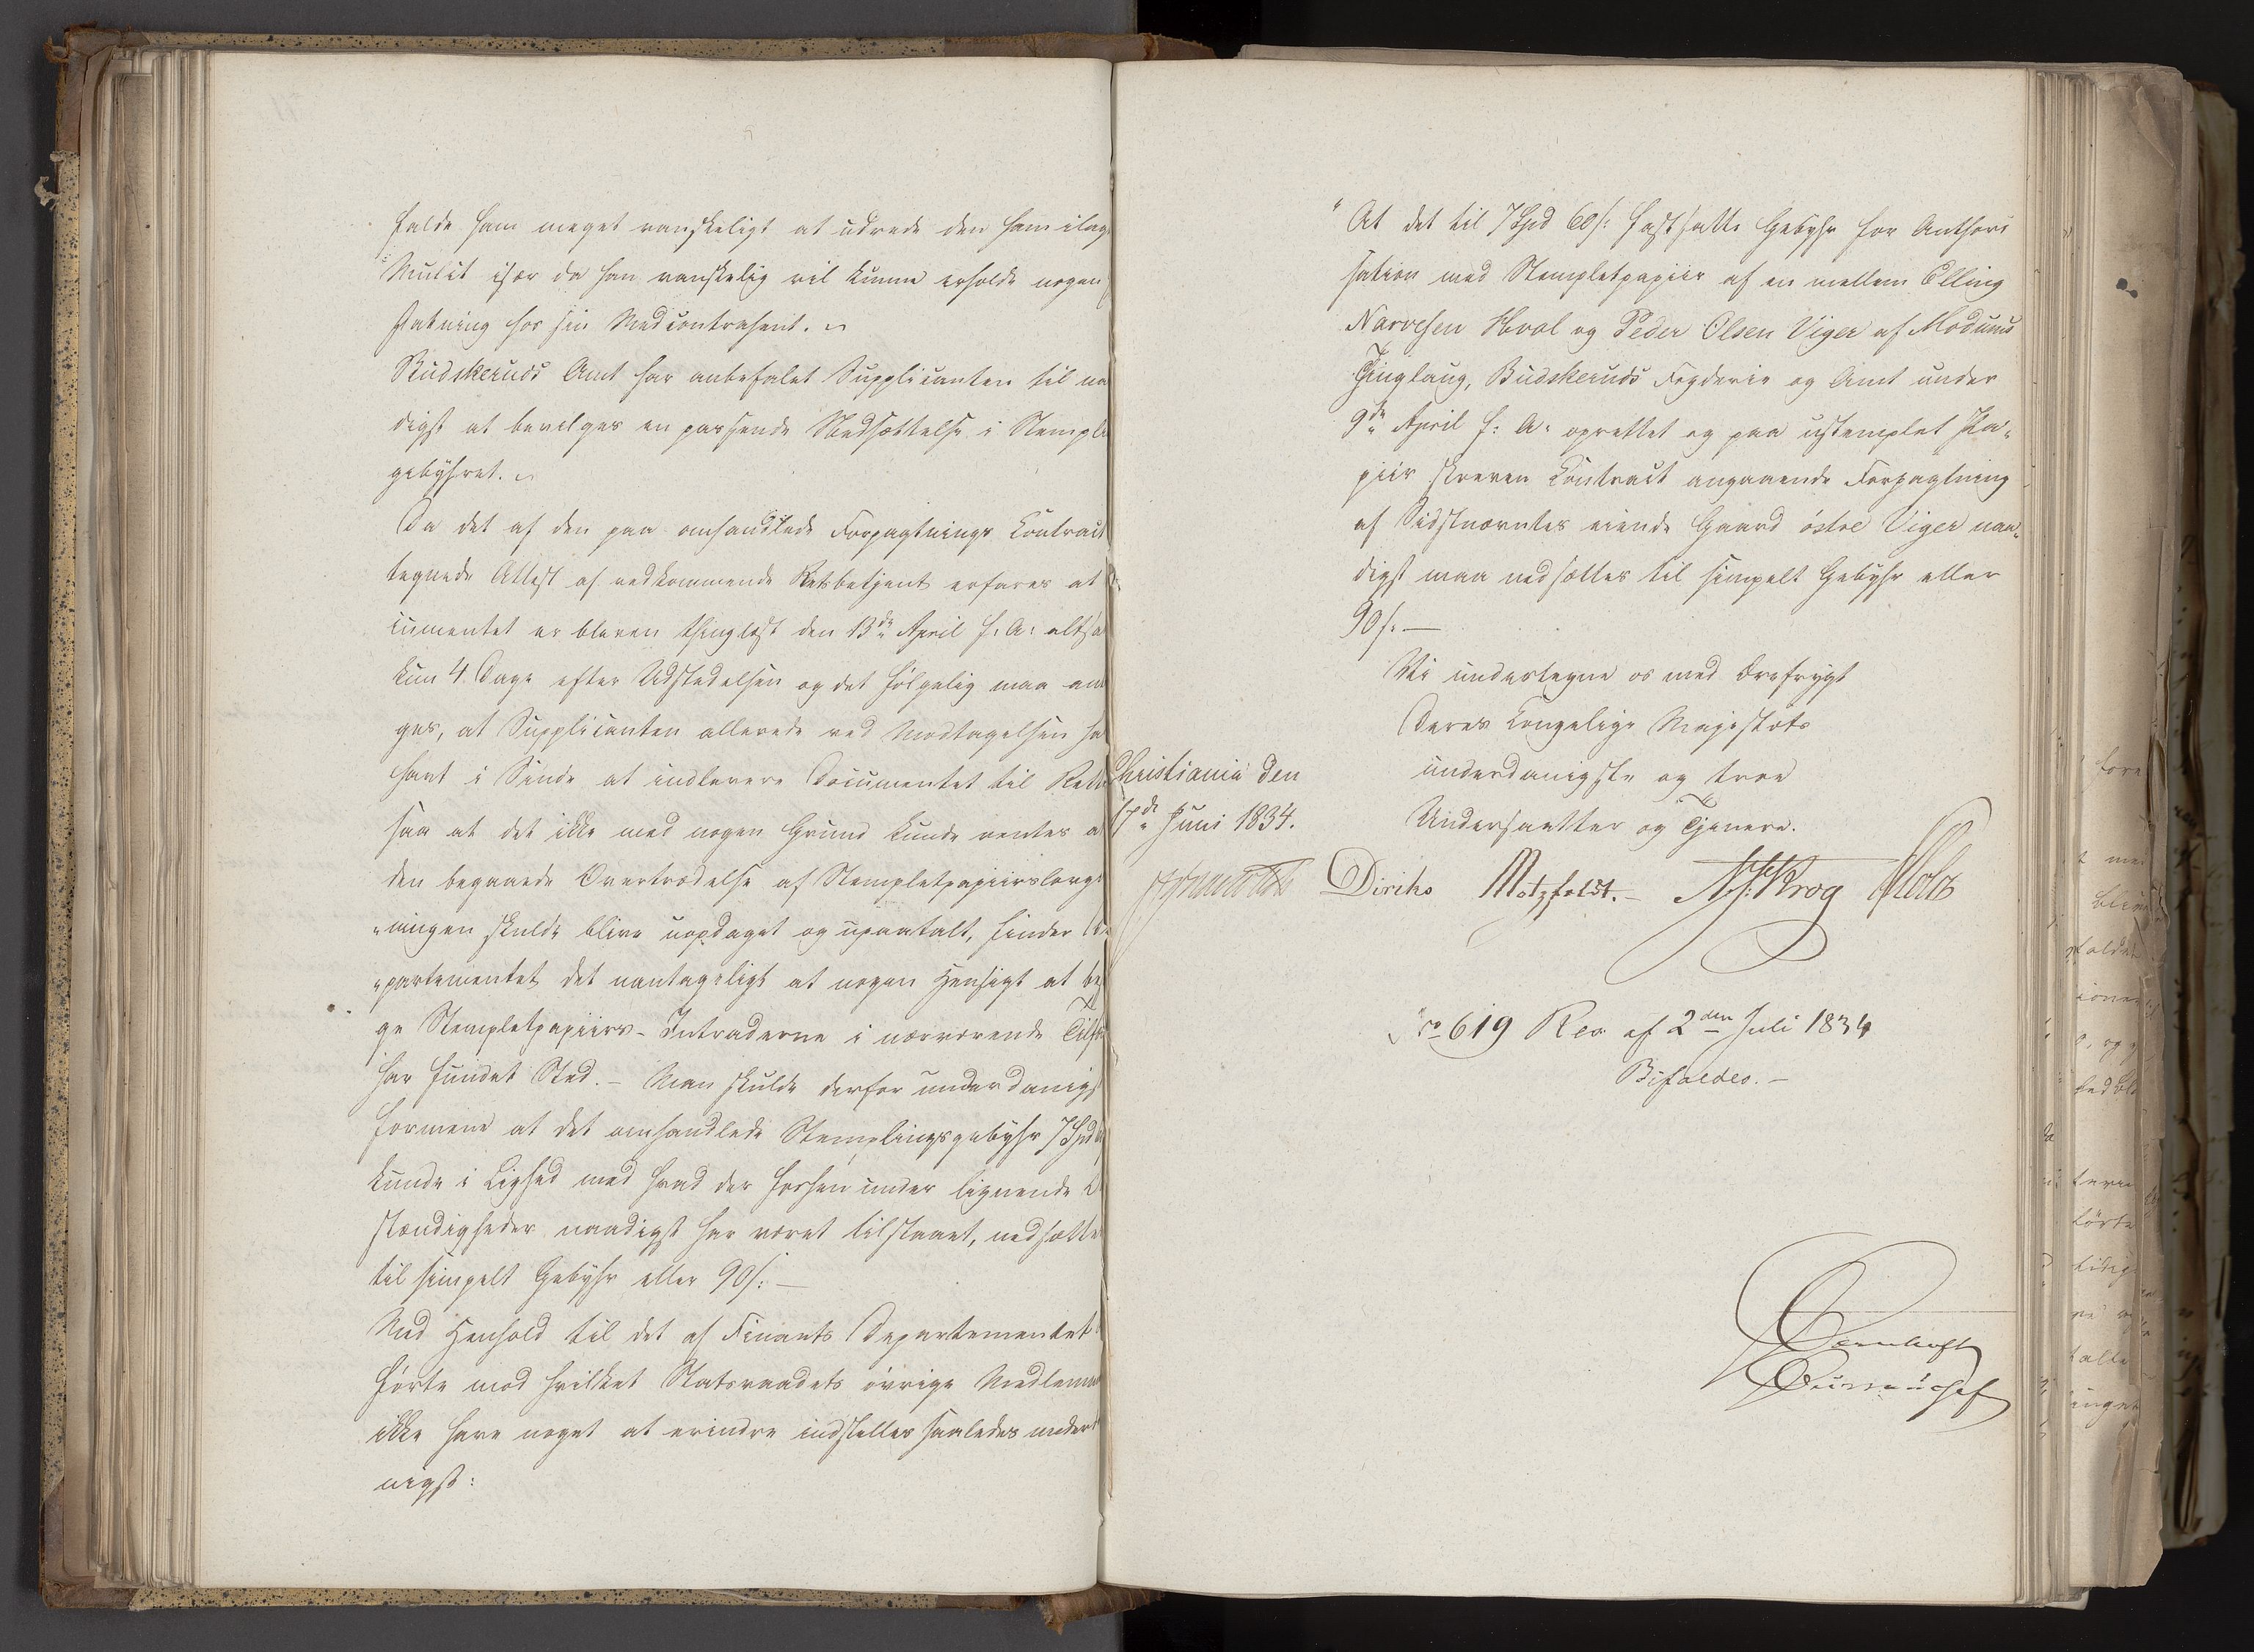 falde ham meget vanskeligt at udrede den ham ilag
Mulct især da han vanskelig vil kunne erholde nogen
statning hos sin Medcontrahent.
Budskeruds Amt har anbefalet Supplicanten til na
digst at bevilges en passende Nedsættelse i Stemple
gebyhret.
Da det af den paa omhandlede Forpagtnings Contract
tegnede Attest af vedkommende Retsbetjent erfares at
cumentet er bleven thinglæst den 13de April f: A: altsaa
kun 4 Dage efter Udstedelsen og det følgelig maa an
ges, at Supplicanten allerede ved Modtagelsen ha
havt i Sinde at indlevere Documentet til Rette
saa at det ikke med nogen Grund kunde ventes a
den begaaede Overtrædelse af Stempletpapiirslovgi
"ningen skulde blive uopdaget og upaatalt, finder De
"partementet det uantageligt at nogen Hensigt at be
ge Stempletpapiirs-Intraderne i nærværende Tilfæ
har fundet Sted. - Man skulde derfor underdanigst
formene at det omhandlede Stemplingsgebyhr 7 Spd
kunde i Lighed med hvad der forhen under lignende
stændigheder naadigst har været tilstaaet, nedsætte
til simpelt Gebyhr eller 90 s: —
Med Henhold til det af Finants Departementet
førte mod hvilket Statsraadets øvrige Medlemme
ikke have noget at erindre indstilles saaledes under
nigst:
" At det til 7 Spd 60 s: fastsatte Gebyhr for Authori
sation med Stempletpapiir af en mellem Elling
Narvesen Hval og Peder Olsen Viger af Modums
Thinglaug, Budskeruds Fogderie og Amt under
9de April f: A: oprettet og paa ustemplet Pa„
piir skreven Contract angaaende Forpagtning
af Sidstnævntes eiende Gaard østre Viger naa„
digst maa nedsættes til simpelt Gebyhr eller
90 s: —
Vi undertegne os med Ærefrygt
Deres Kongelige Majestæts
underdanigste og troe
Undersaatter og Tjenere.
Christiania den
17de Juni 1834.
Diriks Motzfeldt. - N. J. Krog Holst
No 619 Res af 2den Juli 1834
Bifaldes. -
Bureauchef